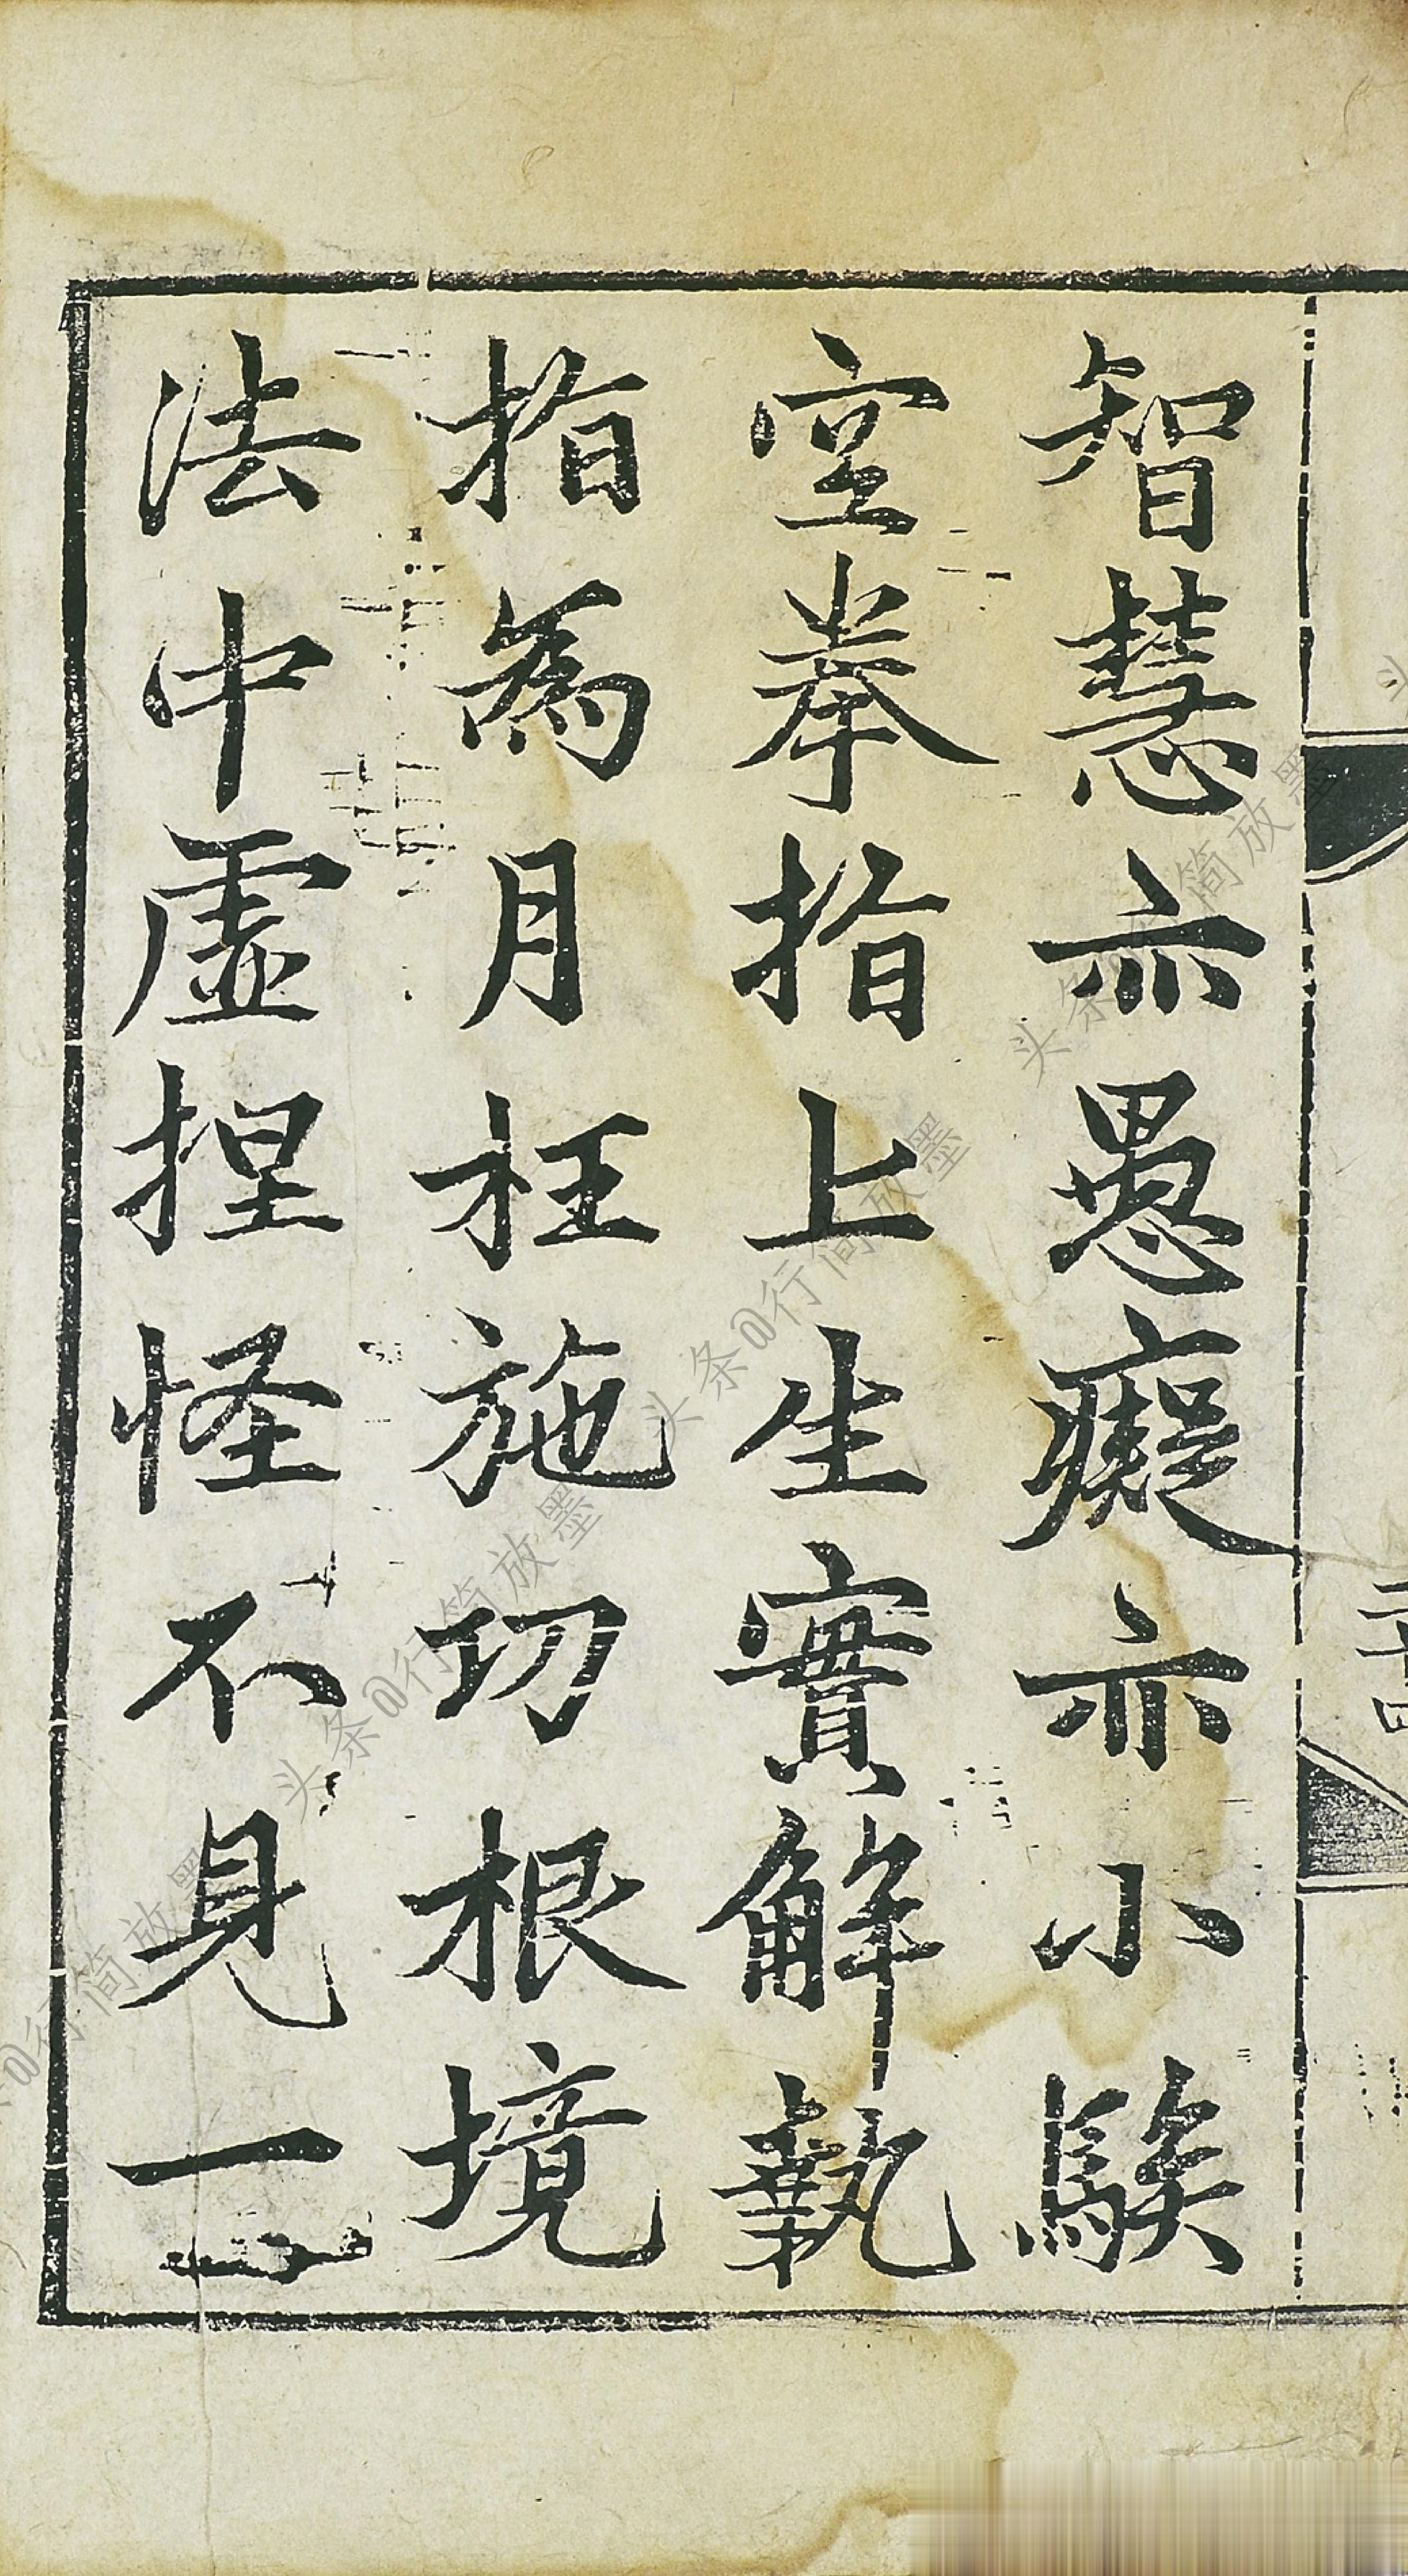 智慧亦愚癡亦小騃
空拳指上生實解執
指為月枉施功根境
法中虛捏怪不見一
二十四
头条@行简放墨
头条@行简放墨
头条@行简放墨
@行简放墨